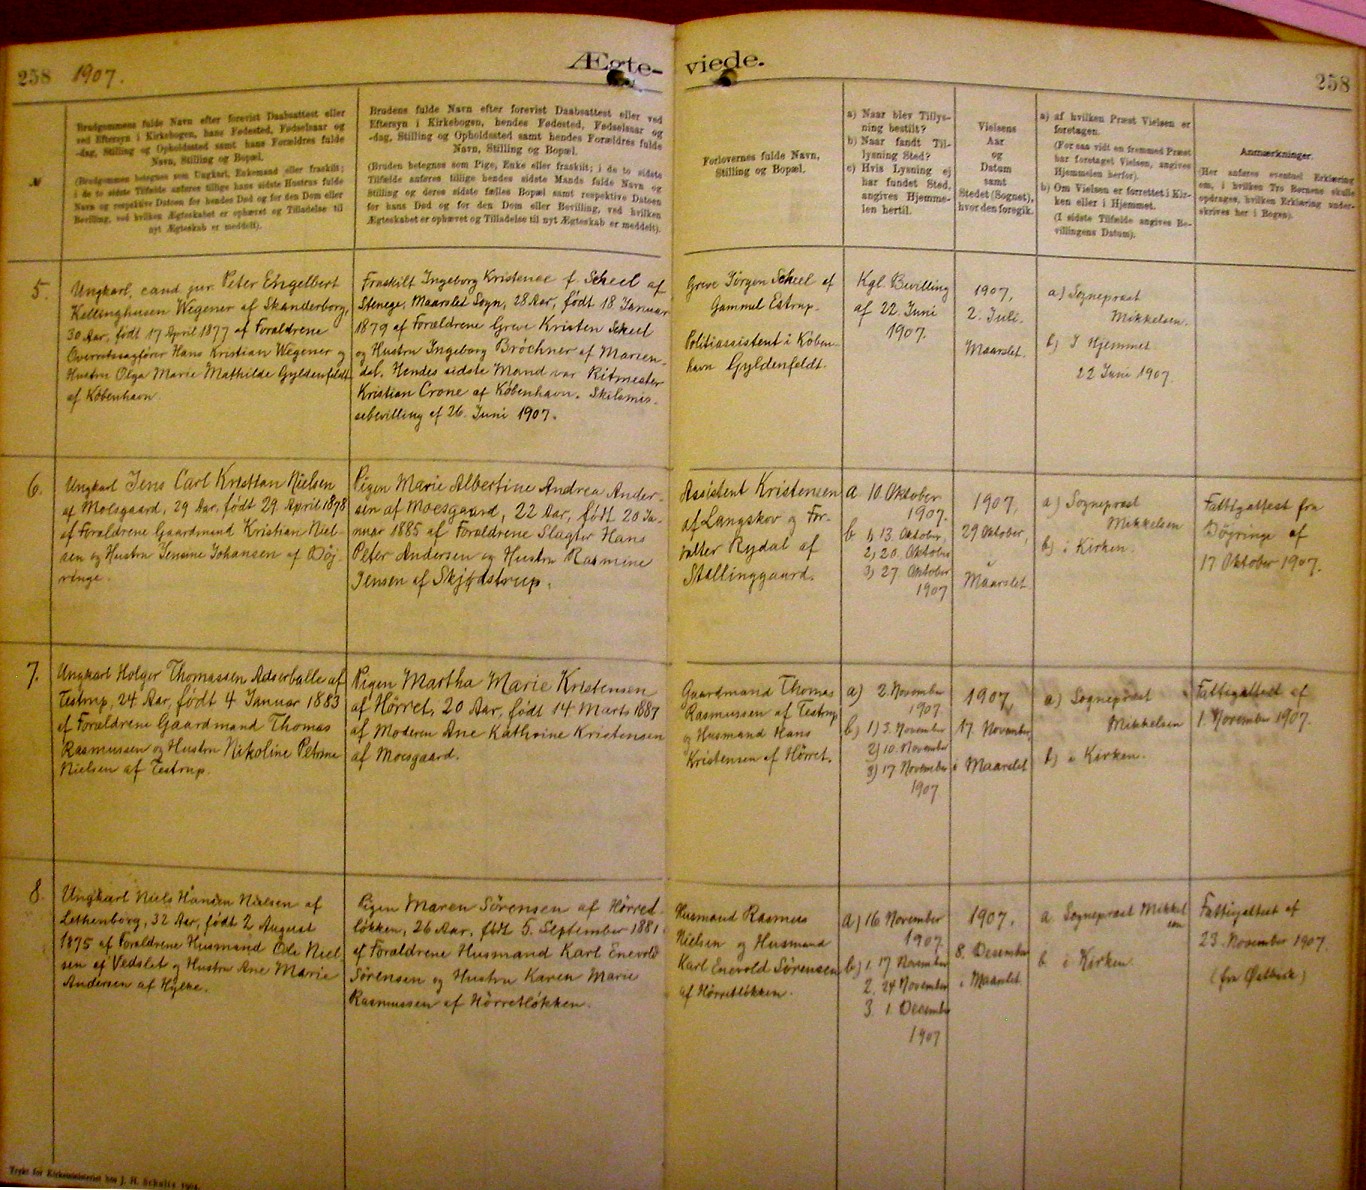 258 1907.
Ægte-
viede.
258
№
Brudgommens fulde Navn efter forevist Daabsattest eller
ved Eftersyn i Kirkebogen, hans Fødested, Fødselsaar og
-dag, Stilling og Opholdssted samt hans Forældres fulde
Navn, Stilling og Bopæl.
(Brudgommen betegnes som Ungkarl, Enkemand eller fraskilt;
i de to sidste Tilfælde anføres tillige hans sidste Hustrus fulde
Navn og respektive Datoen for hendes Død og for den Dom eller
Bevilling, ved hvilken Ægteskabet er ophævet og Tilladelse til
nyt Ægteskab er meddelt).
Brudens fulde Navn efter forevist Daabsattest eller ved
Eftersyn i Kirkebogen, hendes Fødested, Fødselsaar og
-dag, Stilling og Opholdssted samt hendes Forældres fulde
Navn, Stilling og Bopæl.
(Bruden betegnes som Pige, Enke eller fraskilt; i de to sidste
Tilfælde anføres tillige hendes sidste Mands fulde Navn og
Stilling og deres sidste fælles Bopæl samt respektive Datoen
for hans Død og for den Dom eller Bevilling, ved hvilken
Ægteskabet er ophævet og Tilladelse til nyt Ægteskab er meddelt).
Forlovernes fulde Navn,
Stilling og Bopæl.
a) Naar blev Tillys-
ning bestilt?
b) Naar fandt Til-
lysning Sted?
c) Hvis Lysning ej
har fundet Sted,
angives Hjemme-
len hertil.
Vielsens
Aar
og
Datum
samt
Stedet (Sognet),
hvor den foregik.
a) af hvilken Præst Vielsen er
foretagen.
(For saa vidt en fremmed Præst
har foretaget Vielsen, angives
Hjemmelen herfor).
b) Om Vielsen er forrettet i Kir-
ken eller i Hjemmet.
(I sidste Tilfælde angives Be-
villingens Datum).
Anmærkninger.
(Her anføres eventuel Erklæring
om, i hvilken Tro Børnene skulle
opdrages, hvilken Erklæring under-
skrives her i Bogen).
5.
Ungkarl, cand. jur. Peter Engelbert
Kellinghusen Wegener af Skanderborg,
30 Aar, født 17 April 1877 af Forældrene
Overretssagfører Hans Kristian Wegener og
Hustru Olga Marie Mathilde Gyldenfeldt
af København.
Fraskilt Ingeborg Kristence f. Scheel af
Stenege, Maarslet Sogn, 28 Aar, født 18 Januar
1879 af Forældrene Greve Kristen Scheel
og Hustru Ingeborg Bröchner af Marien-
dal. Hendes sidste Mand var Ritmester
Kristian Crone af København. Skilsmis-
sebevilling af 26. Juni 1907.
Greve Jörgen Scheel af
Gammel Estrup.
Politiassistent i Køben-
havn Gyldenfeldt.
Kgl. Bevilling
af 22. Juni
1907.
1907,
2. Juli.
Maarslet.
a) Sognepræst
Mikkelsen.
b) I Hjemmet.
22 Juni 1907.
6.
Ungkarl Jens Carl Kristian Nielsen
af Moesgaard, 29 Aar, født 29 April 1878
af Forældrene Gaardmand Kristian Niel-
sen og Hustru Jensine Johansen af Döj-
ringe.
Pigen Marie Albertine Andrea Ander-
sen af Moesgaard, 22 Aar, født 20 Ja-
nuar 1885 af Forældrene Slagter Hans
Peter Andersen og Hustru Rasmine
Jensen af Skjødstrup.
Assistent Kristensen
af Langskov og For-
valter Rydal af
Stallinggaard.
a 10. Oktober
1907.
b 1) 13. Oktober
2) 20. Oktober
3) 27. Oktober
1907
1907,
29 Oktober,
Maarslet.
a) Sognepræst
Mikkelsen
b) i Kirken.
Fattigattest fra
Döjringe af
17 Oktober 1907.
7.
Ungkarl Holger Thomassen Adserballe af
Testrup, 24 Aar, født 4 Januar 1883
af Forældrene Gaardmand Thomas
Rasmussen og Hustru Nikoline Petrine
Nielsen af Testrup.
Pigen Martha Marie Kristensen
af Hörret, 20 Aar, født 14 Marts 1887
af Moderen Ane Kathrine Kristensen
af Moesgaard.
Gaardmand Thomas
Rasmussen af Testrup
og Husmand Hans
Kristensen af Hörret.
a) 2. November
1907.
b) 1) 3. November
2) 10. November
3) 17 November
1907
1907,
17. November,
i Maarslet
a) Sognepræst
Mikkelsen
b) i Kirken.
Fattigattest af
1. November 1907.
8.
Ungkarl Niels Hansen Nielsen af
Lethenborg, 32 Aar, født 2 August
1875 af Forældrene Husmand Ole Niel-
sen af Vedslet og Hustru Ane Marie
Andersen af Hylke.
Pigen Maren Sörensen af Hörret-
løkken, 26 Aar, født 5. September 1881
af Forældrene Husmand Karl Enevold
Sörensen og Hustru Karen Marie
Rasmussen af Hörretløkken.
Husmand Rasmus
Nielsen og Husmand
Karl Enevold Sörensen
af Hörretløkken.
a) 16 November
1907
b) 1. 17 November
2. 24 November
3. 1. December
1907
1907.
8. December
i Maarslet.
a Sognepræst Mikkel
sen
b i Kirken.
Fattigattest af
23. November 1907.
(fra Østbirk)
Trykt for Kirkeministeriet hos J. H. Schultz 1904.